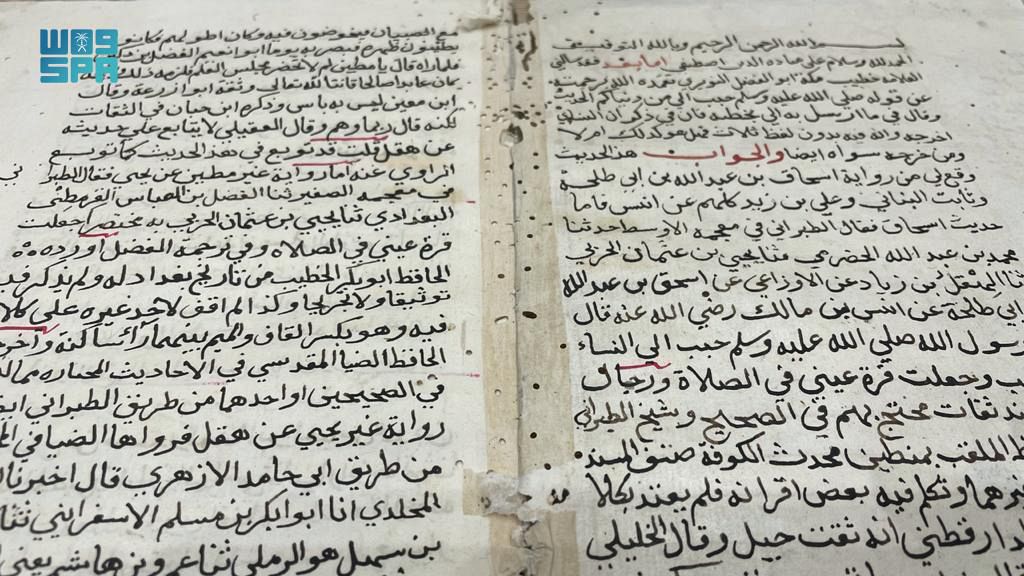 بسم الله الرحمن الرحيم وبالله التوفيق
الحمد لله وسلام على عباده الذين اصطفى اما بعد فقد سالني
العلامة خطيب مكة ابو الفضل النويري تغمده الله برحمته
عن قوله صلي الله عليه وسلم حبب الي من دنياكم الحديث
اخرجه وانه فيه بدون لفظ ثلاث فهل هو كذلك ام لا
ومن خرجه سواه ايضا والجواب هذا الحديث
وقع لي من رواية اسحاق بن عبد الله بن ابي طلحة
وثابت البناني وعلي بن زيد كلهم عن انس فاما
حديث اسحاق فقال الطبراني في معجمه الاوسط حدثنا
محمد بن عبد الله الحضرمي ثنا يحيي بن عثمان الحربي
ثنا الهقل بن زياد عن الاوزاعي عن اسحق بن عبد الله
ابي طلحة عن انس بن مالك رضي الله عنه قال
رسول الله صلي الله عليه وسلم حبب الي النساء
وجعلت قرة عيني في الصلاة ورجال
ثقات محتج بهم في الصحيح وشيخ الطبراني
الملقب بمطين محدث الكوفة صنف المسند
وتكلم فيه بعض اقرانه فلم يعتد بكلا
انه ثقت جبل وقال الخليلي
مع الصبيان
كان عابدا صالحا قانتا لله تعالي وثقه ابو زرعة وقال
ابن معين ليس به باس وذكره ابن حبان في الثقات
لكنه قال ربما وهم وقال العقيلي لا يتابع علي حديثه
عن هقل قلت قد توبع في هذا الحديث كما توبع
الراوي عنه اما رواية غير مطين عن يحيى فقال الطبر
في معجمه الصغير ثنا الفضل بن العباس القرطمي
البغدادي ثنا يحيي بن عثمان الحربي به مختصر جعلت
قرة عيني في الصلاة وفي ترجمة الفضل اورده
الحافظ ابو بكر الخطيب من تاريخ بغداد له ولم يذكر فيه
توثيقا ولا تجريحا وكذا لم اقف لاحد غيره على كلا
فيه وهو بكسر القاف والميم بينهما راء ساكنة واخر
الحافظ الضيا المقدسي في الاحاديث المختاره مما
في الصحيحين او احدهما من طريق الطبراني
رواية غير يحيي عن هقل فرواها الضيا في
من طريق ابي حامد الازهري قال اخبرنا
المخلدي انا ابو بكر بن مسلم الاسفرايني ثنا
هو الرملي ثنا عمرو بن هاشم يعني
واس
SPA